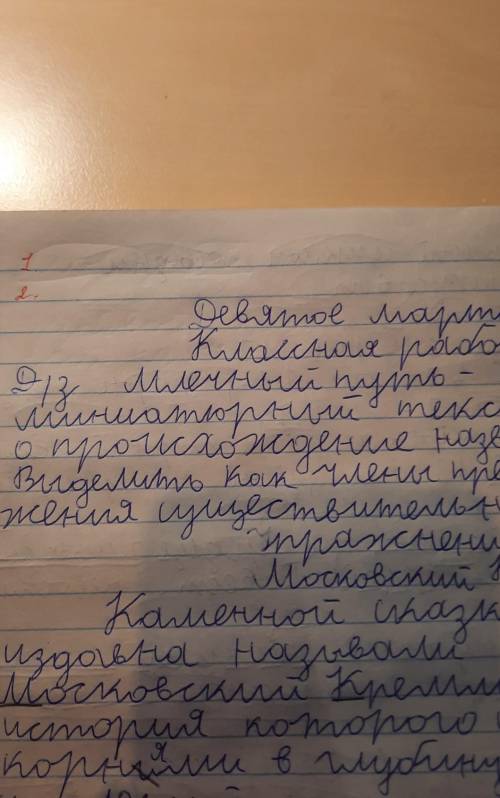 1
2.
Девятое март
Классная рабо
Д/з Млечный путь -
миниатюрный текс
о происхождение назв
Выделить как члены пре
жения существительн
пражнени
Московский К
Каменной сказк
издавна называли
Московский Кремль
история которого
корнями в глубину